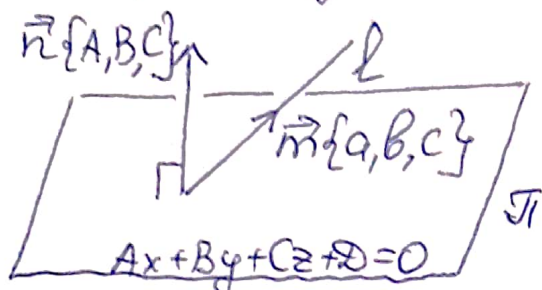 n⃗{A,B,C}
l
m⃗{a,b,c}
π
Ax+By+Cz+D=0